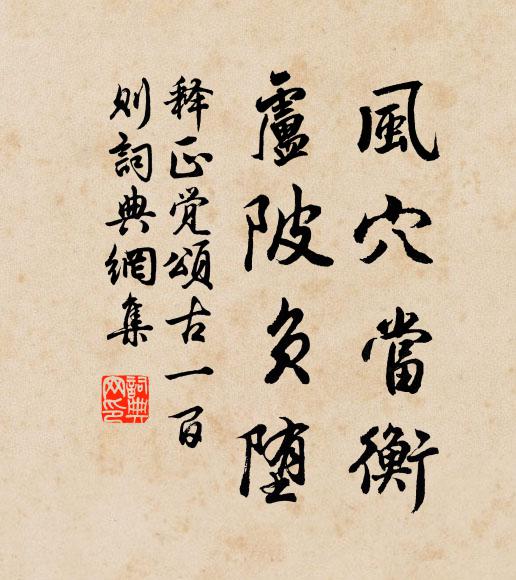 風穴當衡
盧陂負堕
释正觉頌古一百
则詞典網集
詞典
网印